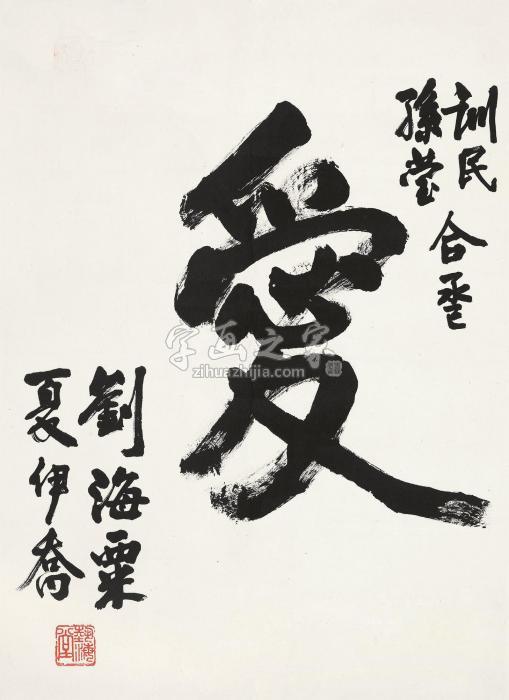 訓民
孫莹
合巹
愛
劉海粟
夏伊喬
藝海堂
字画之家
zihuazhijia.com